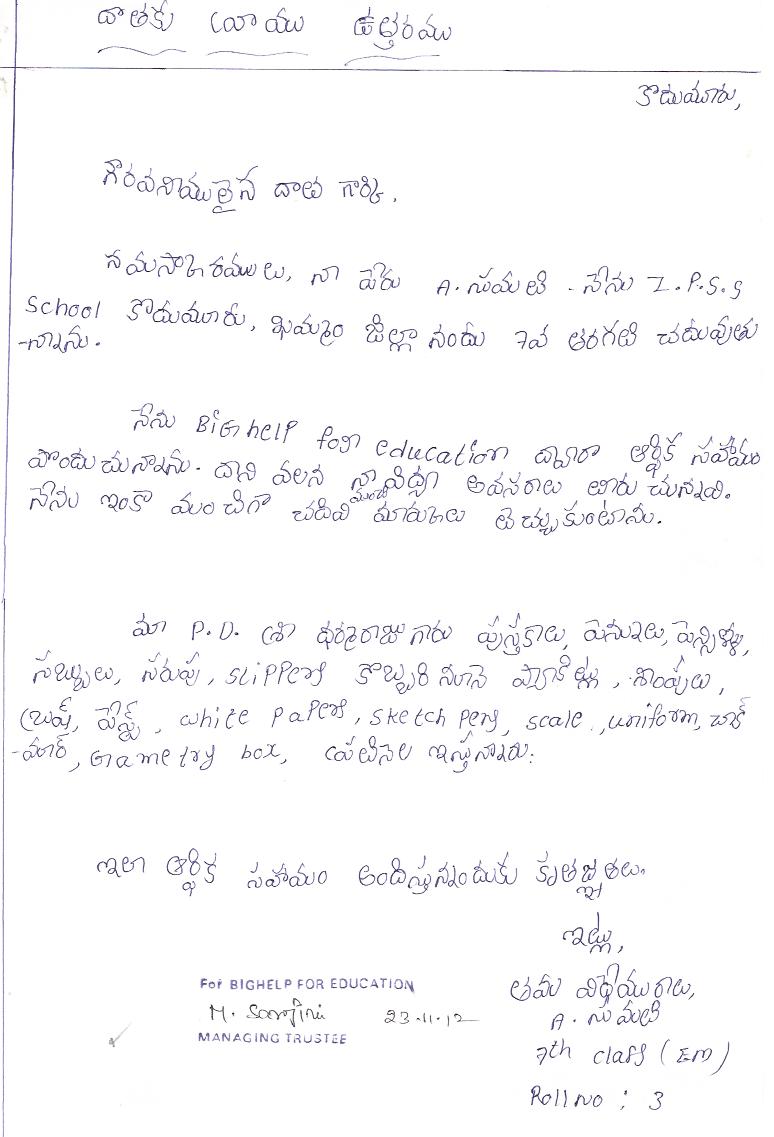 దాతకు వ్రాయు ఉత్తరము
కొదుమూరు,
గౌరవనీయులైన దాత గార్కి,
నమస్కారములు, నా పేరు A. సుమతి - నేను Z.P.S.S
School కొదుమూరు, ఖమ్మం జిల్లా నందు 7వ తరగతి చదువుతు
-న్నాను.
నేను BIGhelp for education ద్వారా ఆర్థిక సహాయం
పొందుచున్నాను. దాని వలన నా విద్యా అవసరాలు తీరుచున్నవి.
నేను ఇంకా మంచిగా చదివి మంచి మార్కులు తెచ్చుకుంటాను.
మా P.D. శ్రీ ధర్మరాజు గారు పుస్తకాలు, పెన్నులు, పెన్సిళ్ళు,
సబ్బులు, సరుపు, slippers కొబ్బరి నూనె ప్యాకెట్లు, శాంపులు,
బ్రష్, పేస్ట్, white papers, sketch pens, scale, uniform, చార్
-మార్, Gametry box, ప్రతినెల ఇస్తున్నారు.
ఇలా ఆర్థిక సహాయం అందిస్తున్నందుకు కృతజ్ఞతలు.
ఇట్లు,
తమ విధేయురాలు,
A. సుమతి
7th class (EM)
Roll No : 3
For BIGHELP FOR EDUCATION
M. Sarojini 23.11.12
MANAGING TRUSTEE